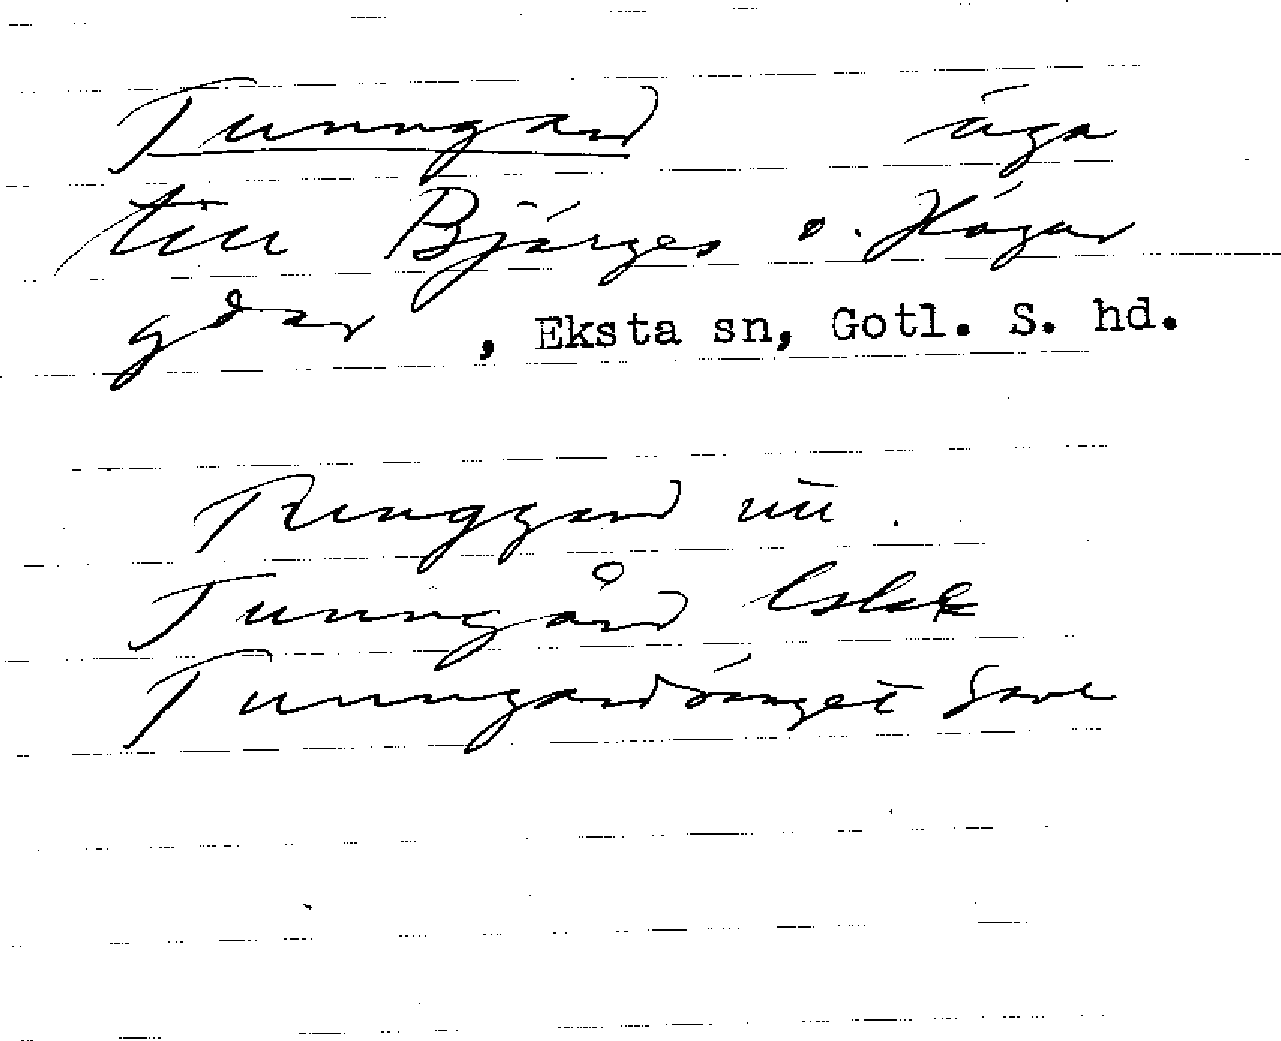 Tunngard äga
till Bjärges o. Hägar
gdar, Eksta sn, Gotl. S. hd.
Tunggard
Tunngård
Tunngardsänget